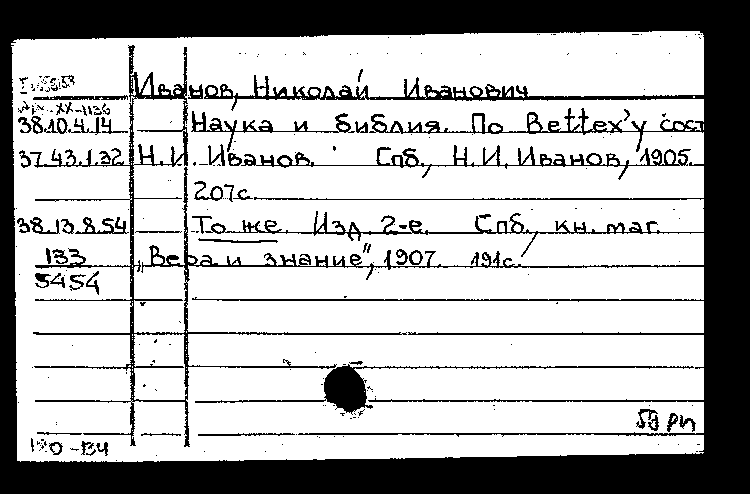 Иванов, Николай Иванович
38.10.4.14 Наука и библия. По Bettex'у сост
37.43.1.32 Н.И. Иванов. Спб., Н.И. Иванов, 1905.
207с.
38.13.8.54 То же. Изд. 2-е. Спб., кн. маг.
133 „Вера и знание", 1907. 191с.
5454